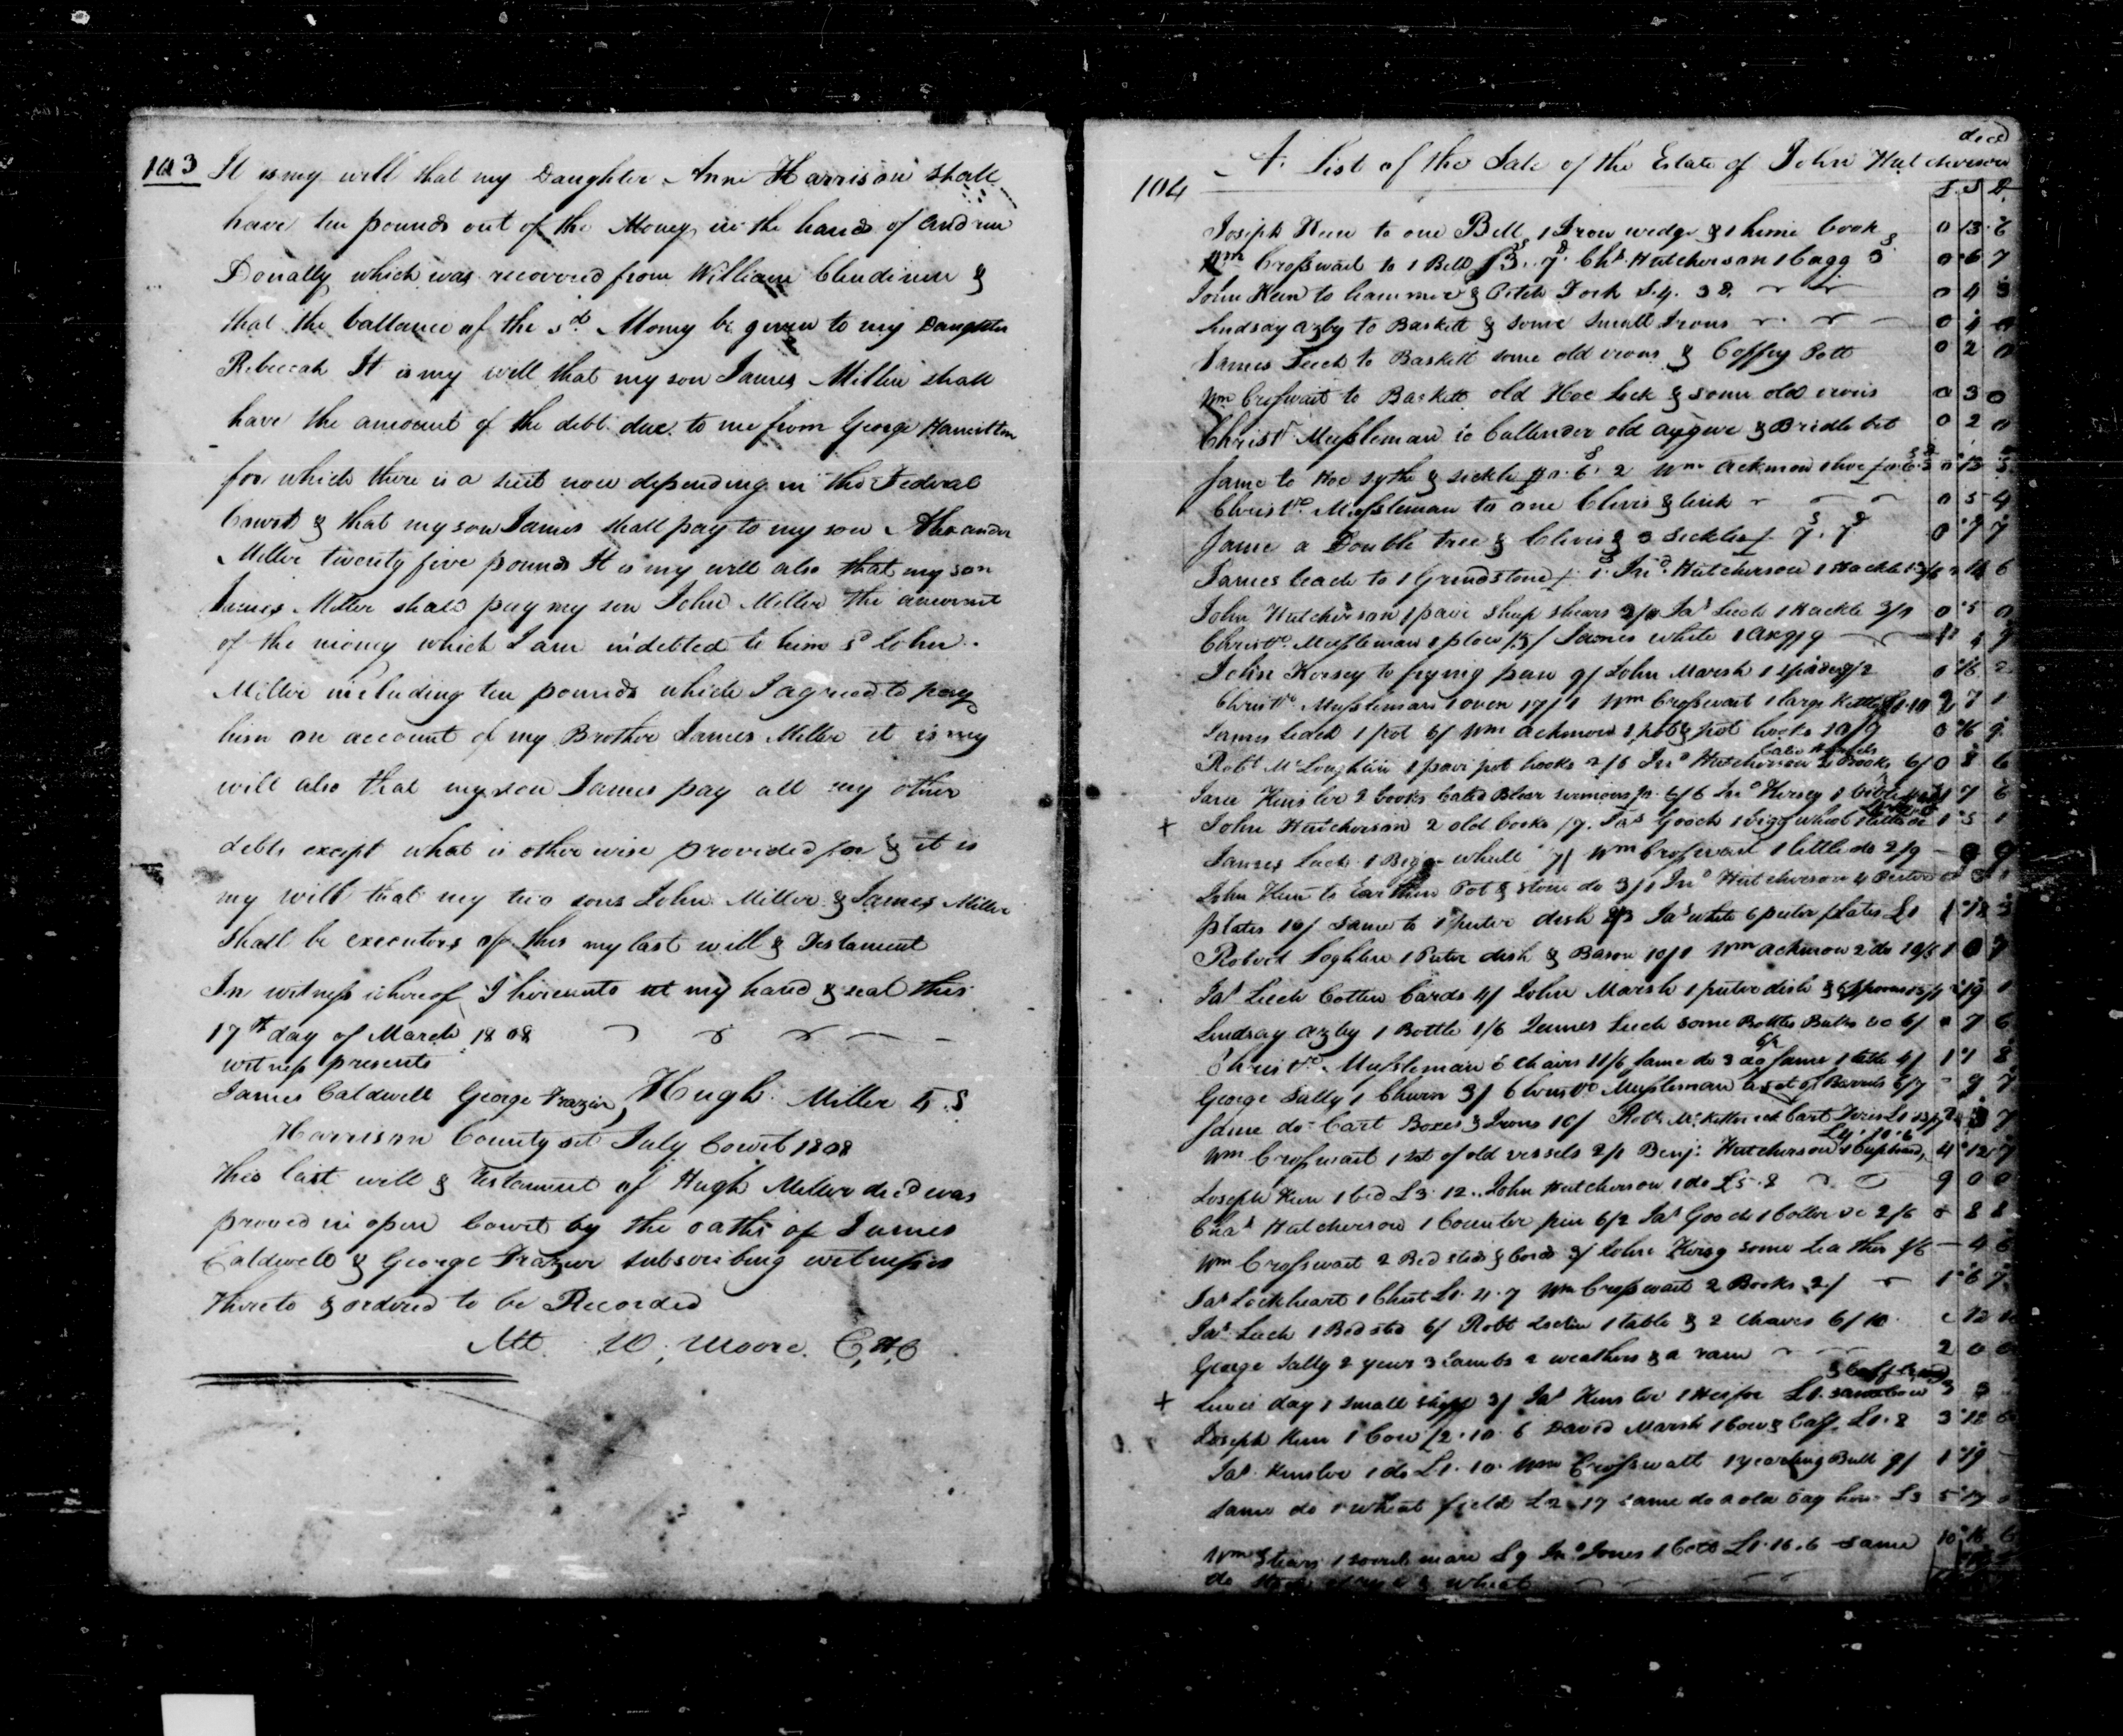 103 It is my will that my Daughter Anne Harrison shall
have ten pounds out of the Money in the hands of Andrew
Donally which was recovered from William Clendinen &
that the ballance of the sd Money be given to my Daughter
Rebeccah It is my will that my son James Miller shall
have the amount of the debt due to me from George Hamilton
for which there is a suit now depending in the Federal
Court & that my son James shall pay to my son Alexander
Miller twenty five pounds It is my will also that my son
James Miller shall pay my son John Miller the amount
of the money which I am indebted to him sd John
Miller including ten pounds which I agreed to pay
him on account of my Brother James Miller it is my
will also that my son James pay all my other
debts except what is other wise provided for & it is
my will that my two sons John Miller & James Miller
Shall be executors of this my last will & Testament
In witness whereof I hereunto set my hand & seal this
17th day of March 1808
witness presents
James Caldwell George Frazier Hugh Miller L.S
Harrison County sct July Court 1808
This last will & testament of Hugh Miller decd was
proved in open Court by the oaths of James
Caldwell & George Frazier subscribing witnesses
thereto & ordered to be Recorded
Att. W. Moore. C,H,C
decd
104 A List of the Sale of the Estate of John Hutcherson
L S D
Joseph Keen to one Bell 1 Iron wedge & 1 hime hook 0 13 6
Wm Crosswait to 1 Bell 3. 7. Chs Hutcherson 1 Cagg 3 0 6 7
John Keen to hammer & Pitch Fork 0 4 3
Lindsay Azby to Baskett & some small Irons 0 4 0
James Leech to Baskett some old irons & Coffey Pott 0 2 0
Wm Crosswait to Baskett old Hoe Lock & some old irons 0 3 0
Christr Mussleman to Cullender old augure & Bridle bit 0 2 0
Same to Hoe sythe & sickle 6. 2 Wm Ackmon 1 hoe
Christo Mussleman to one Clevis & link 0 5 4
Same a Double tree & Clevis & 3 Sickles 7. 7 0 7 7
James Leach to 1 Grindstone Jno Hutcherson 1 Hackle
John Hutcherson 1 pair sheep shears Jas Leech 1 Hackle 0 5 0
Christo Mussleman 1 plow James White 1 ax 9/9
John Kersey to frying pan 9/ John Marsh 1 spider 0 16 2
Christo Mussleman 1 oven 17/1 Wm Crosswait 1 large Kettle 2 7 1
James Leech 1 pot 6/ Wm Ackmon 1 pot & pot hooks 10/9 0 16 9
Robt McLoughlin 1 pair pot hooks 2/6 Jno Hutcherson 2 Books 6/ 0 8 6
Kinsloe 2 books Calld Blear sermons Jno Kersey 1 bible 1 7 6
+ John Hutcherson 2 old books /7. Jas Gooch 1 bigg wheel 1 5 1
James Leech 1 Bigg wheell 7/ Wm Crosswait 1 little do 2/9
John Keen to Earthen Pot & stone do 3/1 Jno Hutcherson 4 Puter
plates 10/ same to 1 puter dish Jas white 6 puter plates L1
Robert Loghlin 1 Puter dish & Bason 10/1 Wm Ackmon 2 do
Jas Leech Cotton Cards 4/ John Marsh 1 puter dish
Lindsay Azby 1 Bottle 1/6 James Leech some Bottles 6/ 0 7 6
Christo Mussleman 6 Chairs 11/6 Same do 3 do Same 1 table 4/
George Sally 1 Churn 3/ Christo Mussleman a set of Barrels 6/7 9 7
Same do Cart Boxes & Irons 10/ Robt Cart Tires
Wm Crosswait 1 set of old vessels 2/1 Benj. Hutcherson 1 Cupboard L4.10.6 4 12 7
Joseph Keen 1 bed L3. 12.. John Hutcherson 1 do L5.8 9 0 0
Chas Hutcherson 1 Counter pin 6/2 Jas Gooch 2/6 0 8 8
Wm Crosswait 2 Bed steds & Cord 3/ John Kersy some Leather 1/6 4 6
Jas Lockheart 1 Chest L1. 4. 7 Wm Crosswait 2 Books 2/ 1 6 7
Jas Leech 1 Bedsted 6/ Robt 1 table & 2 Chares 6/10 12 10
George Sally 2 yews 3 Lambs 2 weathers & a ram 2 0 0
+ Lewis day 1 small 3/ Jas Kinsloe 1 Heifer L1. same Cow & Calf
Joseph Keen 1 Cow L2. 10. 6 David Marsh 1 Cow & Calf L1. 8 3 18 6
Jas Kinsloe 1 do L1. 10. Wm Crosswait 1 yearling Bull 9/ 1 19
same do 1 wheat field L2 17 same do a old bay horse L3 5 17
Wm Stears 1 sorrel mare L9 Jno Jones 1 Colt L1.16.6 same 10 16 6
do & wheat